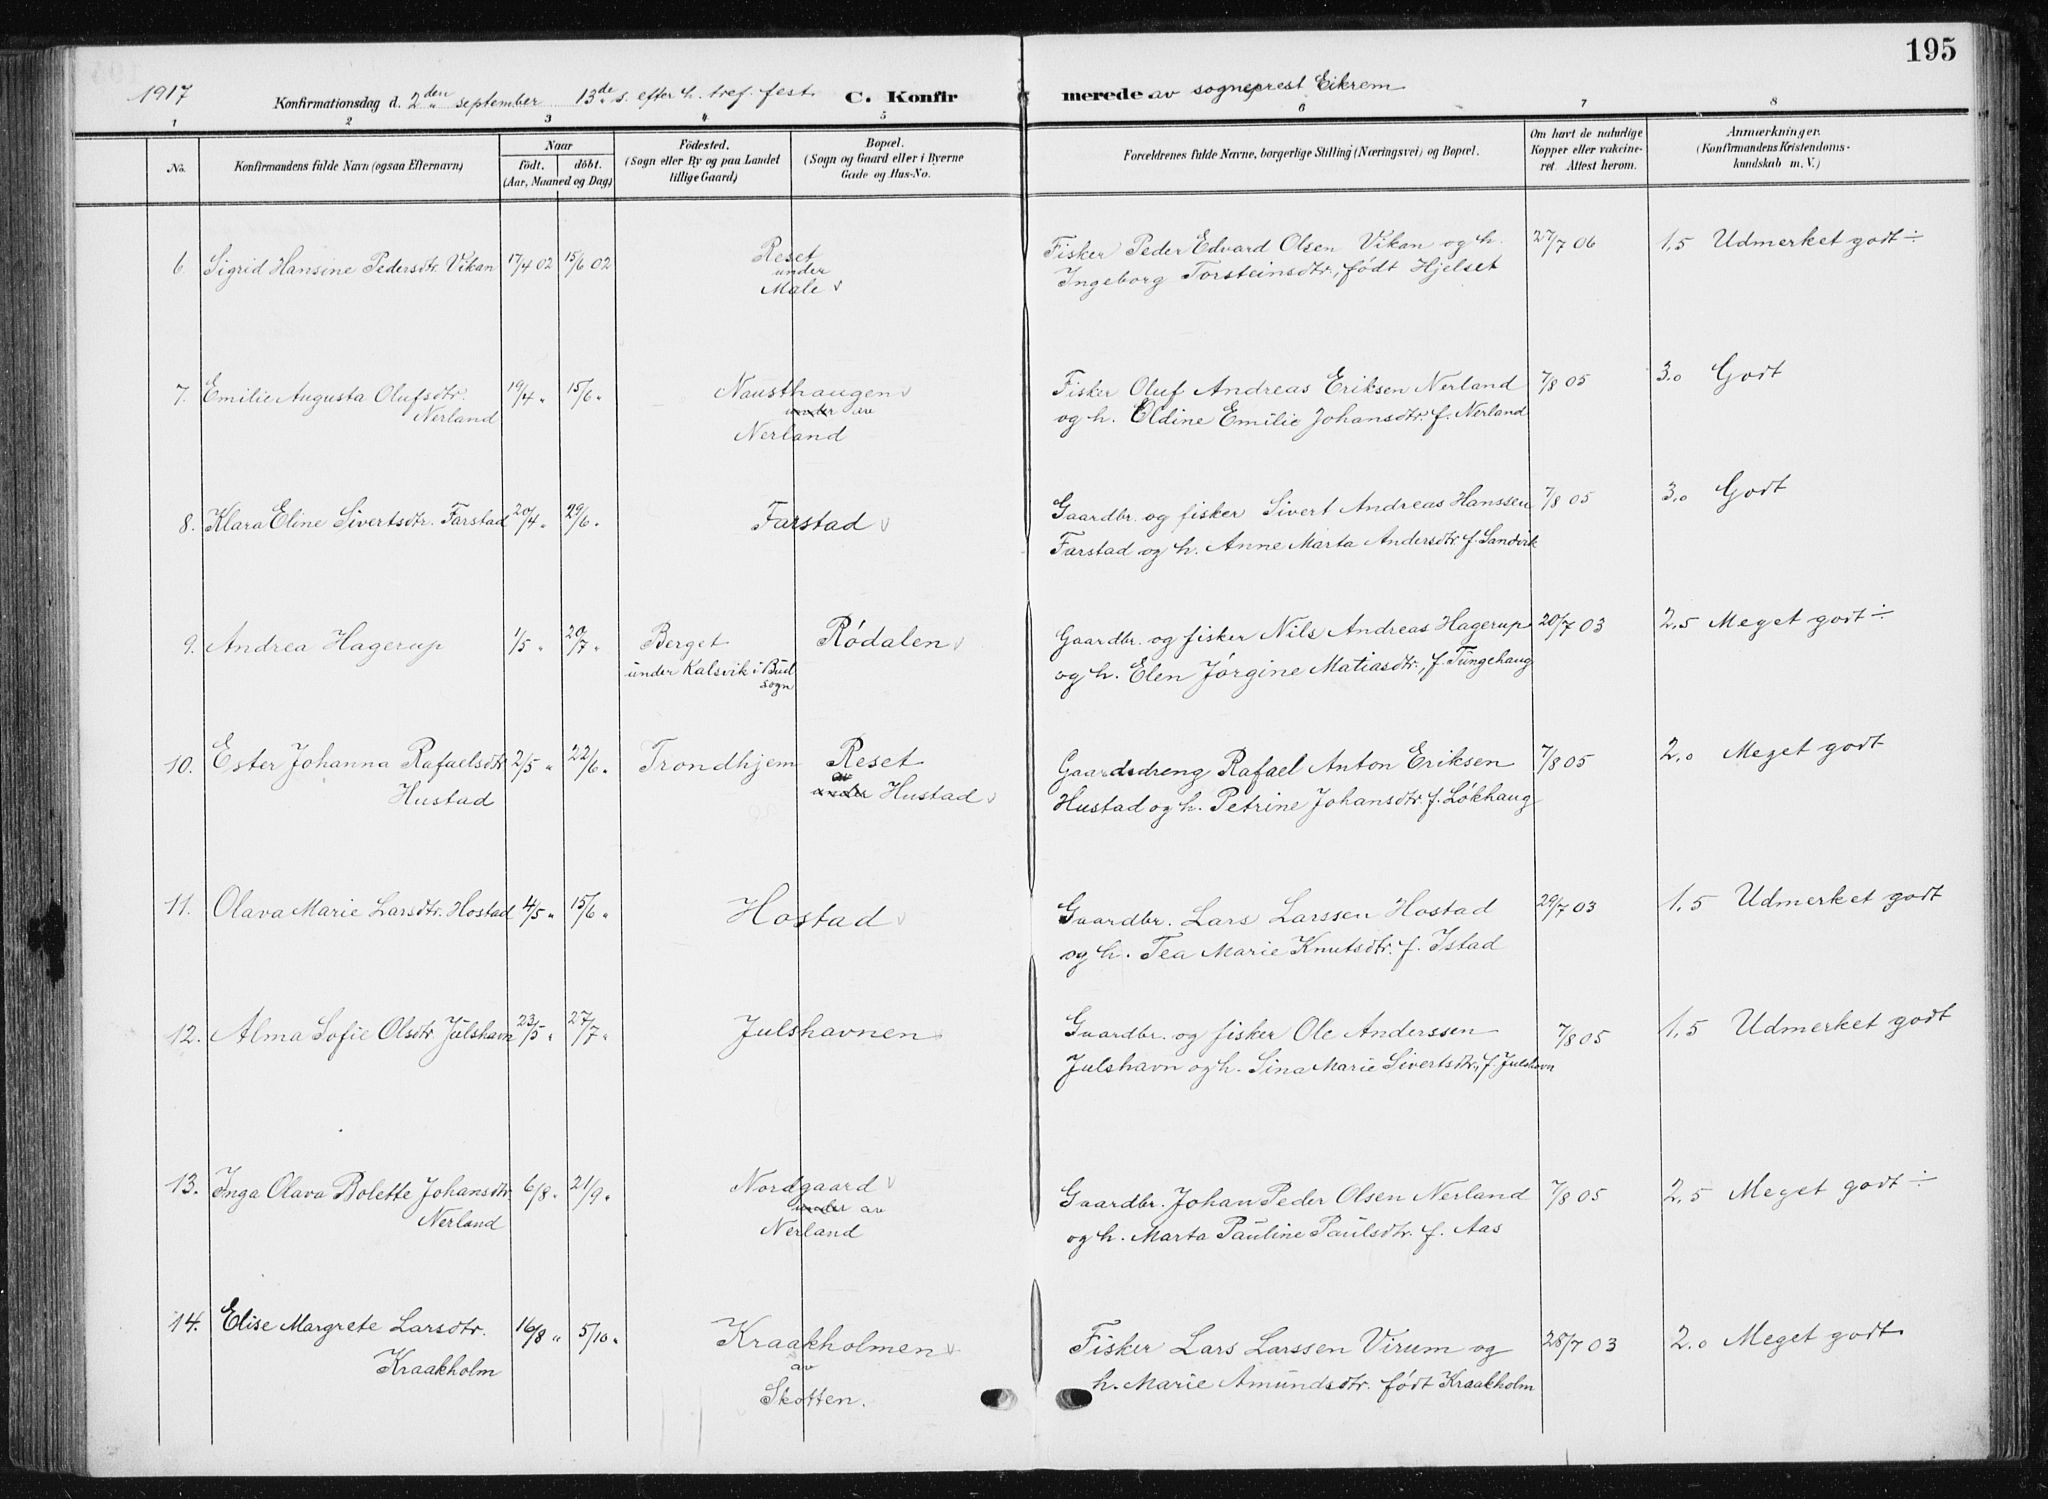 195
1917 Konfirmationsdag d. 2den september 13de s. efter h. tref. fest C. Konfirmerede av sogneprest Eikrem
1 2 3 4 5 6 7 8
No. Konfirmandens fulde Navn (ogsaa Efternavn) Naar født. døbt. (Aar, Maaned og Dag) Fødested. (Sogn eller By og paa Landet tillige Gaard) Bopæl. (Sogn og Gaard eller i Byerne Gade og Hus-No. Forældrenes fulde Navne, borgerlige Stilling (Næringsvei) og Bopæl. Om havt de naturlige Kopper eller vakcineret. Attest herom. Anmærkninger. (Konfirmandens Kristendomskundskab m. V.)
6. Sigrid Hansine Pedersdtr. Vikan 17/4 02 15/6 02 Reset under Male v Fisker Peder Edvard Olsen Vikan og h. 27/7 06 1,5 Udmerket godt ÷
Ingeborg Torsteinsdtr., født Hjelset
7. Emilie Augusta Olufsdtr. 19/4 " 15/6 " Nausthaugen v Fisker Oluf Andreas Eriksen Nerland 7/8 05 3.0 Godt
Nerland under av Nerland og h. Eldine Emilie Johansdtr. f. Nerland
8. Klara Eline Sivertsdtr. Farstad 20/4 " 29/6 " Farstad v Gaardbr. og fisker Sivert Andreas Hanssen 7/8 05 3.0 Godt
Farstad og h. Anne Marta Andersdtr. f. Sandvik
9. Andrea Hagerup 1/5 " 20/7 " Berget Rødalen v Gaardbr. og fisker Nils Andreas Hagerup 20/7 03 2,5 Meget godt ÷
under Kalsvik i Bud sogn og h. Elen Jørgine Matiasdtr., f. Tungehaug
10. Ester Johanna Rafaelsdtr 2/5 " 22/6 " Trondhjem Reset Gaardsdreng Rafael Anton Eriksen 7/8 05 2.0 Meget godt
Hustad under av Hustad v Hustad og h. Petrine Johansdtr. f. Løkhaug
11. Olava Marie Larsdtr. Hostad 4/5 " 15/6 " Hostad v Gaardbr. Lars Larssen Hostad 29/7 03 1,5 Udmerket godt
og h. Tea Marie Knutsdtr. f. Istad
12. Alma Sofie Olsdtr. Julshavn 23/5 " 27/7 " Julshavnen v Gaardbr. og fisker Ole Anderssen 7/8 05 1,5 Udmerket godt
Julshavn og h. Sina Marie Sivertsdtr., f. Julshavn
13. Inga Olava Bolette Johansdtr 6/8 " 21/9 " Nordgaard v Gaardbr. Johan Peder Olsen Nerland 7/8 05 2,5 Meget godt ÷
Nerland under av Nerland og h. Marta Pauline Paulsdtr. f. Aas
14. Elise Margrete Larsdtr. 16/8 " 5/10 " Kraakholmen v Fisker Lars Larssen Virum og 28/7 03 2.0 Meget godt
Kraakholm av Skotten. h. Marie Amundsdtr. født Kraakholm